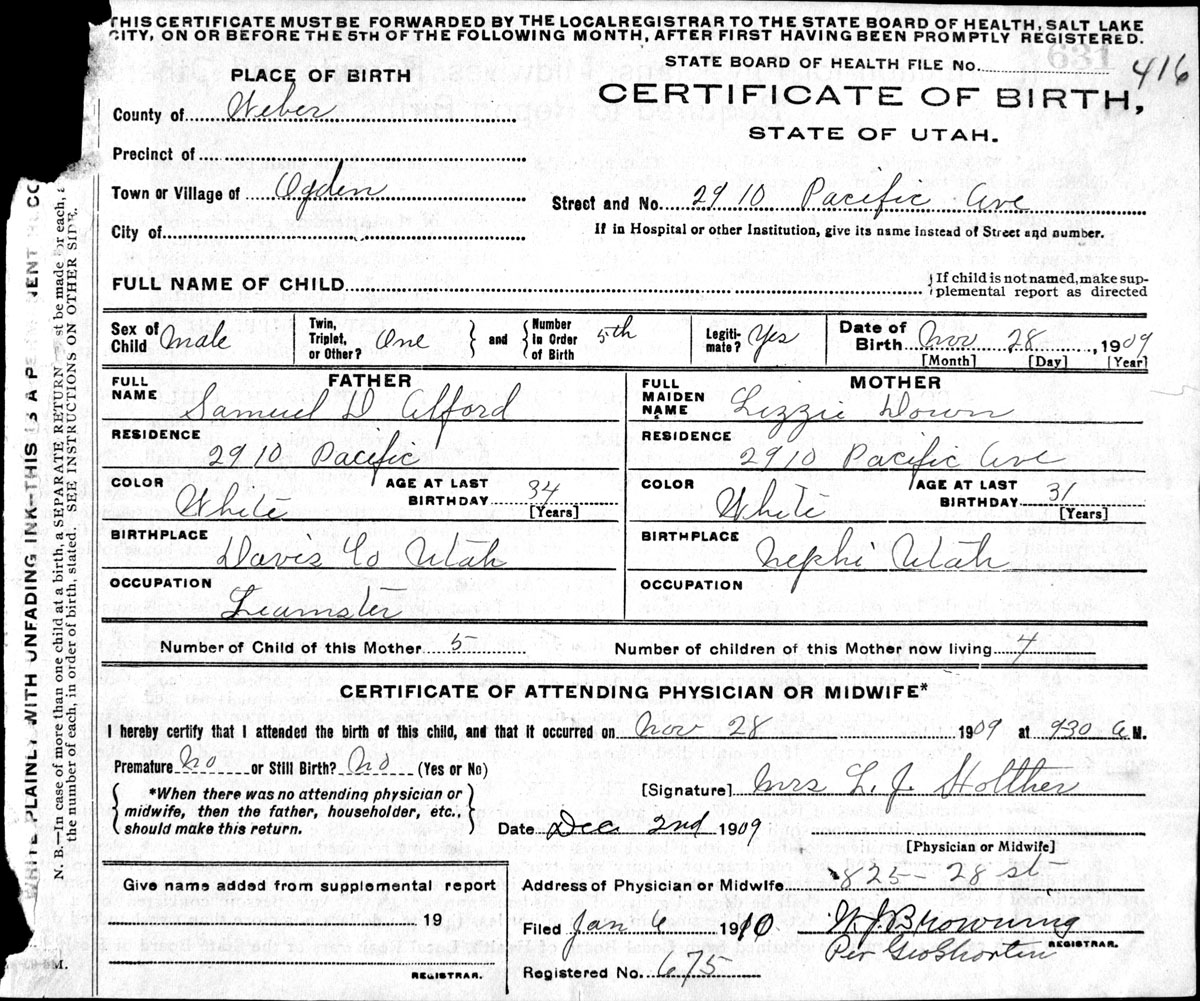 THIS CERTIFICATE MUST BE FORWARDED BY THE LOCAL REGISTRAR TO THE STATE BOARD OF HEALTH, SALT LAKE
CITY, ON OR BEFORE THE 5TH OF THE FOLLOWING MONTH, AFTER FIRST HAVING BEEN PROMPTLY REGISTERED.
STATE BOARD OF HEALTH FILE No. 416
PLACE OF BIRTH
CERTIFICATE OF BIRTH,
STATE OF UTAH.
County of Weber
Precinct of
Town or Village of Ogden
Street and No. 2910 Pacific Ave
City of
If in Hospital or other Institution, give its name instead of Street and number.
FULL NAME OF CHILD
If child is not named, make sup-
plemental report as directed
Sex of Child Male
Twin, Triplet, or Other? One
and Number In Order of Birth 5th
Legiti-mate? Yes
Date of Birth Nov 28, 1909
[Month] [Day] [Year]
FATHER
FULL NAME Samuel D Alford
RESIDENCE 2910 Pacific
COLOR White
AGE AT LAST BIRTHDAY 34
[Years]
BIRTHPLACE Davis Co Utah
OCCUPATION Teamster
MOTHER
FULL MAIDEN NAME Lizzie Down
RESIDENCE 2910 Pacific Ave
COLOR White
AGE AT LAST BIRTHDAY 31
[Years]
BIRTHPLACE Nephi Utah
OCCUPATION
Number of Child of this Mother 5
Number of children of this Mother now living 4
CERTIFICATE OF ATTENDING PHYSICIAN OR MIDWIFE*
I hereby certify that I attended the birth of this child, and that it occurred on Nov 28 1909 at 930 A M.
Premature No or Still Birth? No (Yes or No)
*When there was no attending physician or
midwife, then the father, householder, etc.,
should make this return.
[Signature] Mrs L. J. Holther
Date Dec 2nd 1909
[Physician or Midwife]
Give name added from supplemental report
19
REGISTRAR.
Address of Physician or Midwife 825 - 28 st
Filed Jan 6 1910
W J Browning
REGISTRAR.
Per Geo Shorten
Registered No. 675
WRITE PLAINLY WITH UNFADING INK-THIS IS A
N. B.—In case of more than one child at a birth, a SEPARATE RETURN must be made for each,
the number of each, in order of birth, stated. SEE INSTRUCTIONS ON OTHER SIDE.